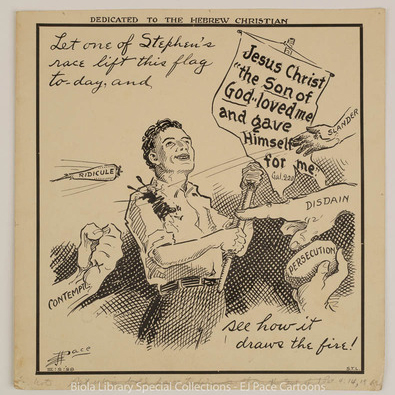 DEDICATED TO THE HEBREW CHRISTIAN
Let one of Stephen's
race lift this flag
to-day, and
Jesus Christ
"the Son of
God" loved me
and gave
Himself
for me."
Gal. 2:20
SLANDER
RIDICULE
DISDAIN
PERSECUTION
CONTEMPT
see how it
draws the fire!
EJPace
S.T.L.
Biola Library Special Collections - EJ Pace Cartoons